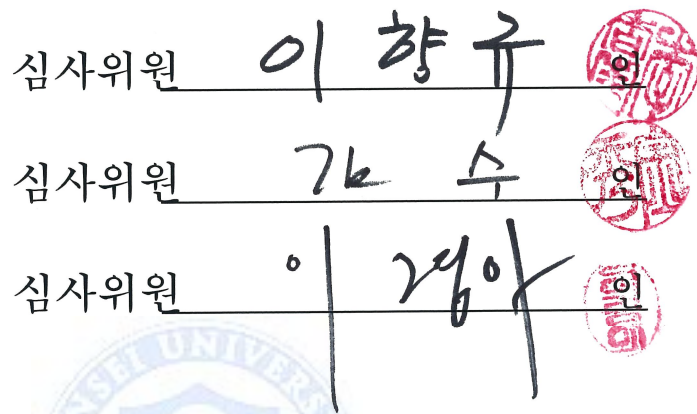 심사위원 이 향 규 인
심사위원 수 인
심사위원 이 경아 인
UNIVERS